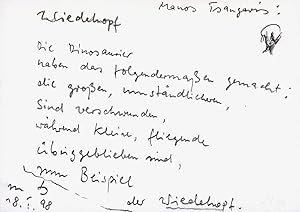 Manos Tsangaris:
Wiedehopf
Die Dinosaurier
haben das folgendermaßen gemacht:
die großen, umständlichen,
sind verschwunden,
während kleine, fliegende
übriggeblieben sind,
zum Beispiel
der Wiedehopf.
18.I.98